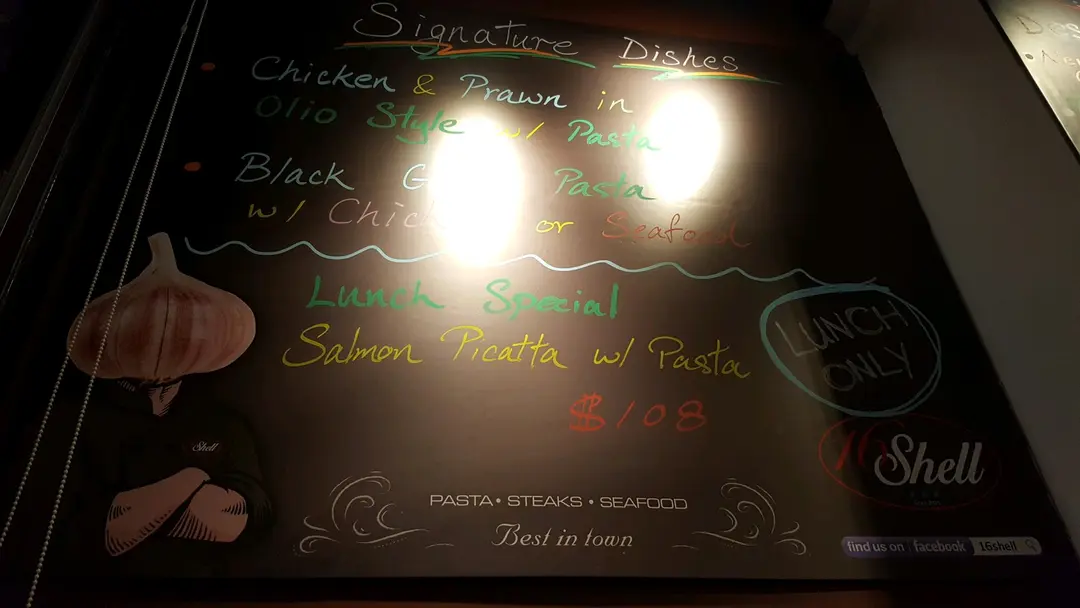 Signature Dishes
Chicken & Prawn in
Olio Style w/ Pasta
Black Pasta
w/ or Seafood
Lunch Special
Salmon Picatta w/ Pasta
$108
LUNCH
ONLY
16 Shell
Shell
PASTA • STEAKS • SEAFOOD
Best in town
find us on facebook 16shell